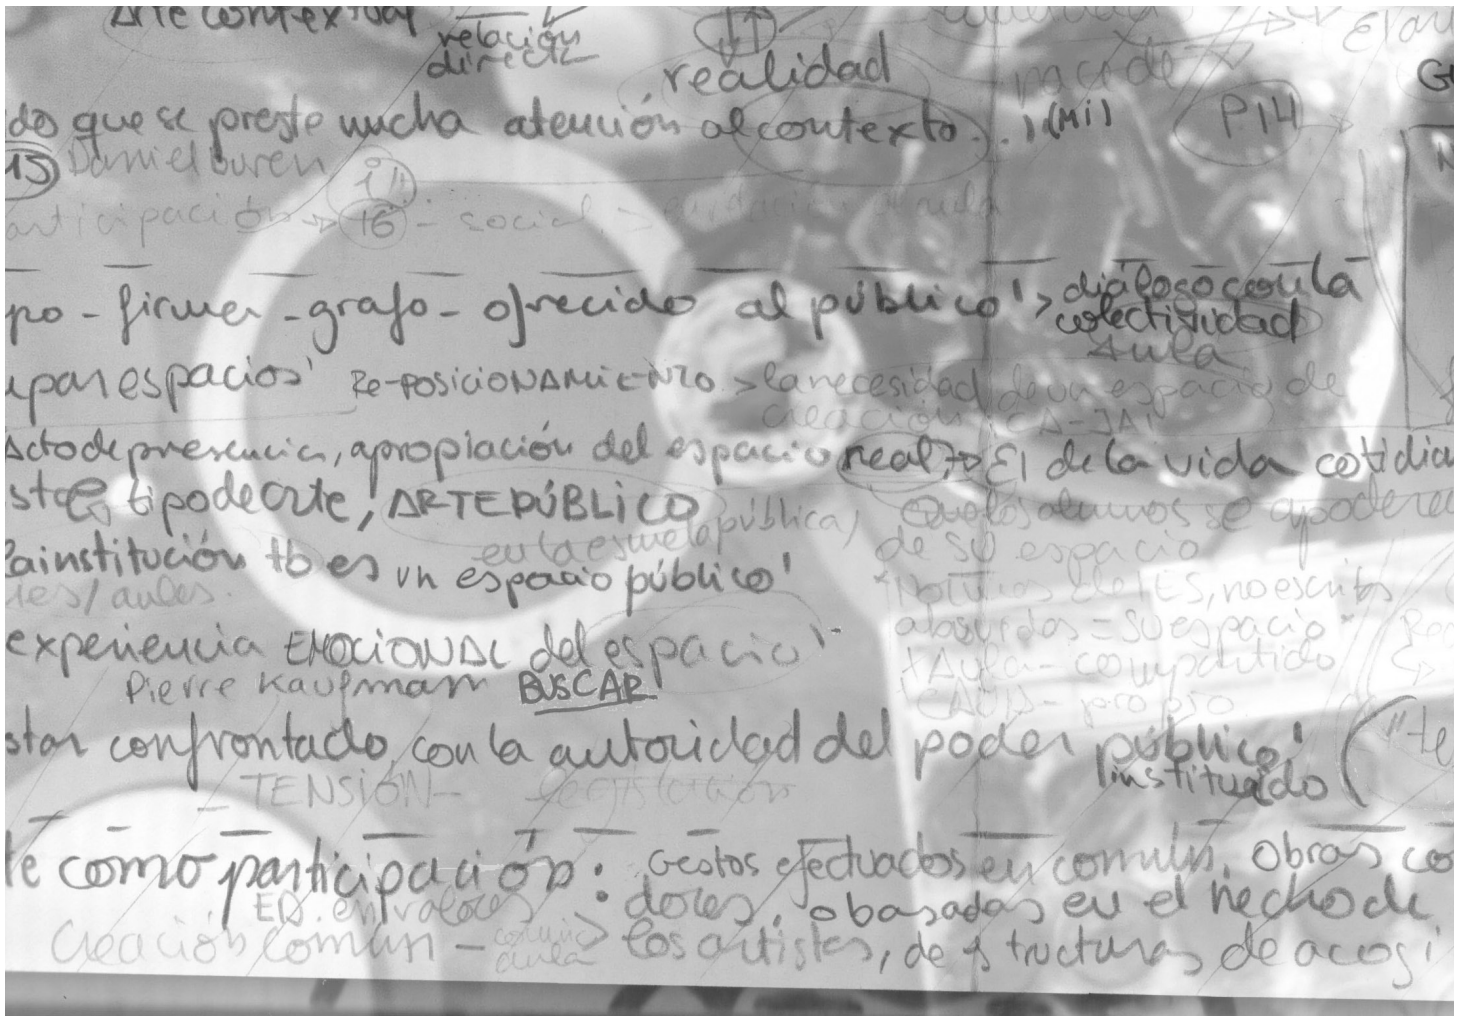 Arte contextual relación
directa
realidad
do que se preste mucha atención al contexto... (Mi) P14
15 Daniel buren
articipación → 16 - social >
po - firma - grafo - ofrecido al público' > diálogo con la
colectividad
Aula
upar espacios' Re-POSICIONAMIENTO > la necesidad de un espacio de
creación
Acto de presencia, apropiación del espacio real → El de la vida cotidia
ste tipo de arte, ARTE PÚBLICO
en la escuela pública, Que los alumnos se apoderen
de su espacio
la institución tb es un espacio público'
ies/aulas.
*Noticias del IES, no escritos
absurdos = SU espacio*
experiencia EMOCIONAL del espacio'
+Aula - compartido
Pierre Kaufmann BUSCAR
- propio
star confrontado con la autoridad del poder público'
instituido
- TENSIÓN - legislación
te como participación: Gestos efectuados en común. Obras co
ED. en valores dores, o basadas en el hecho de
Creación común - aula > los artistas, de structuras de acogi